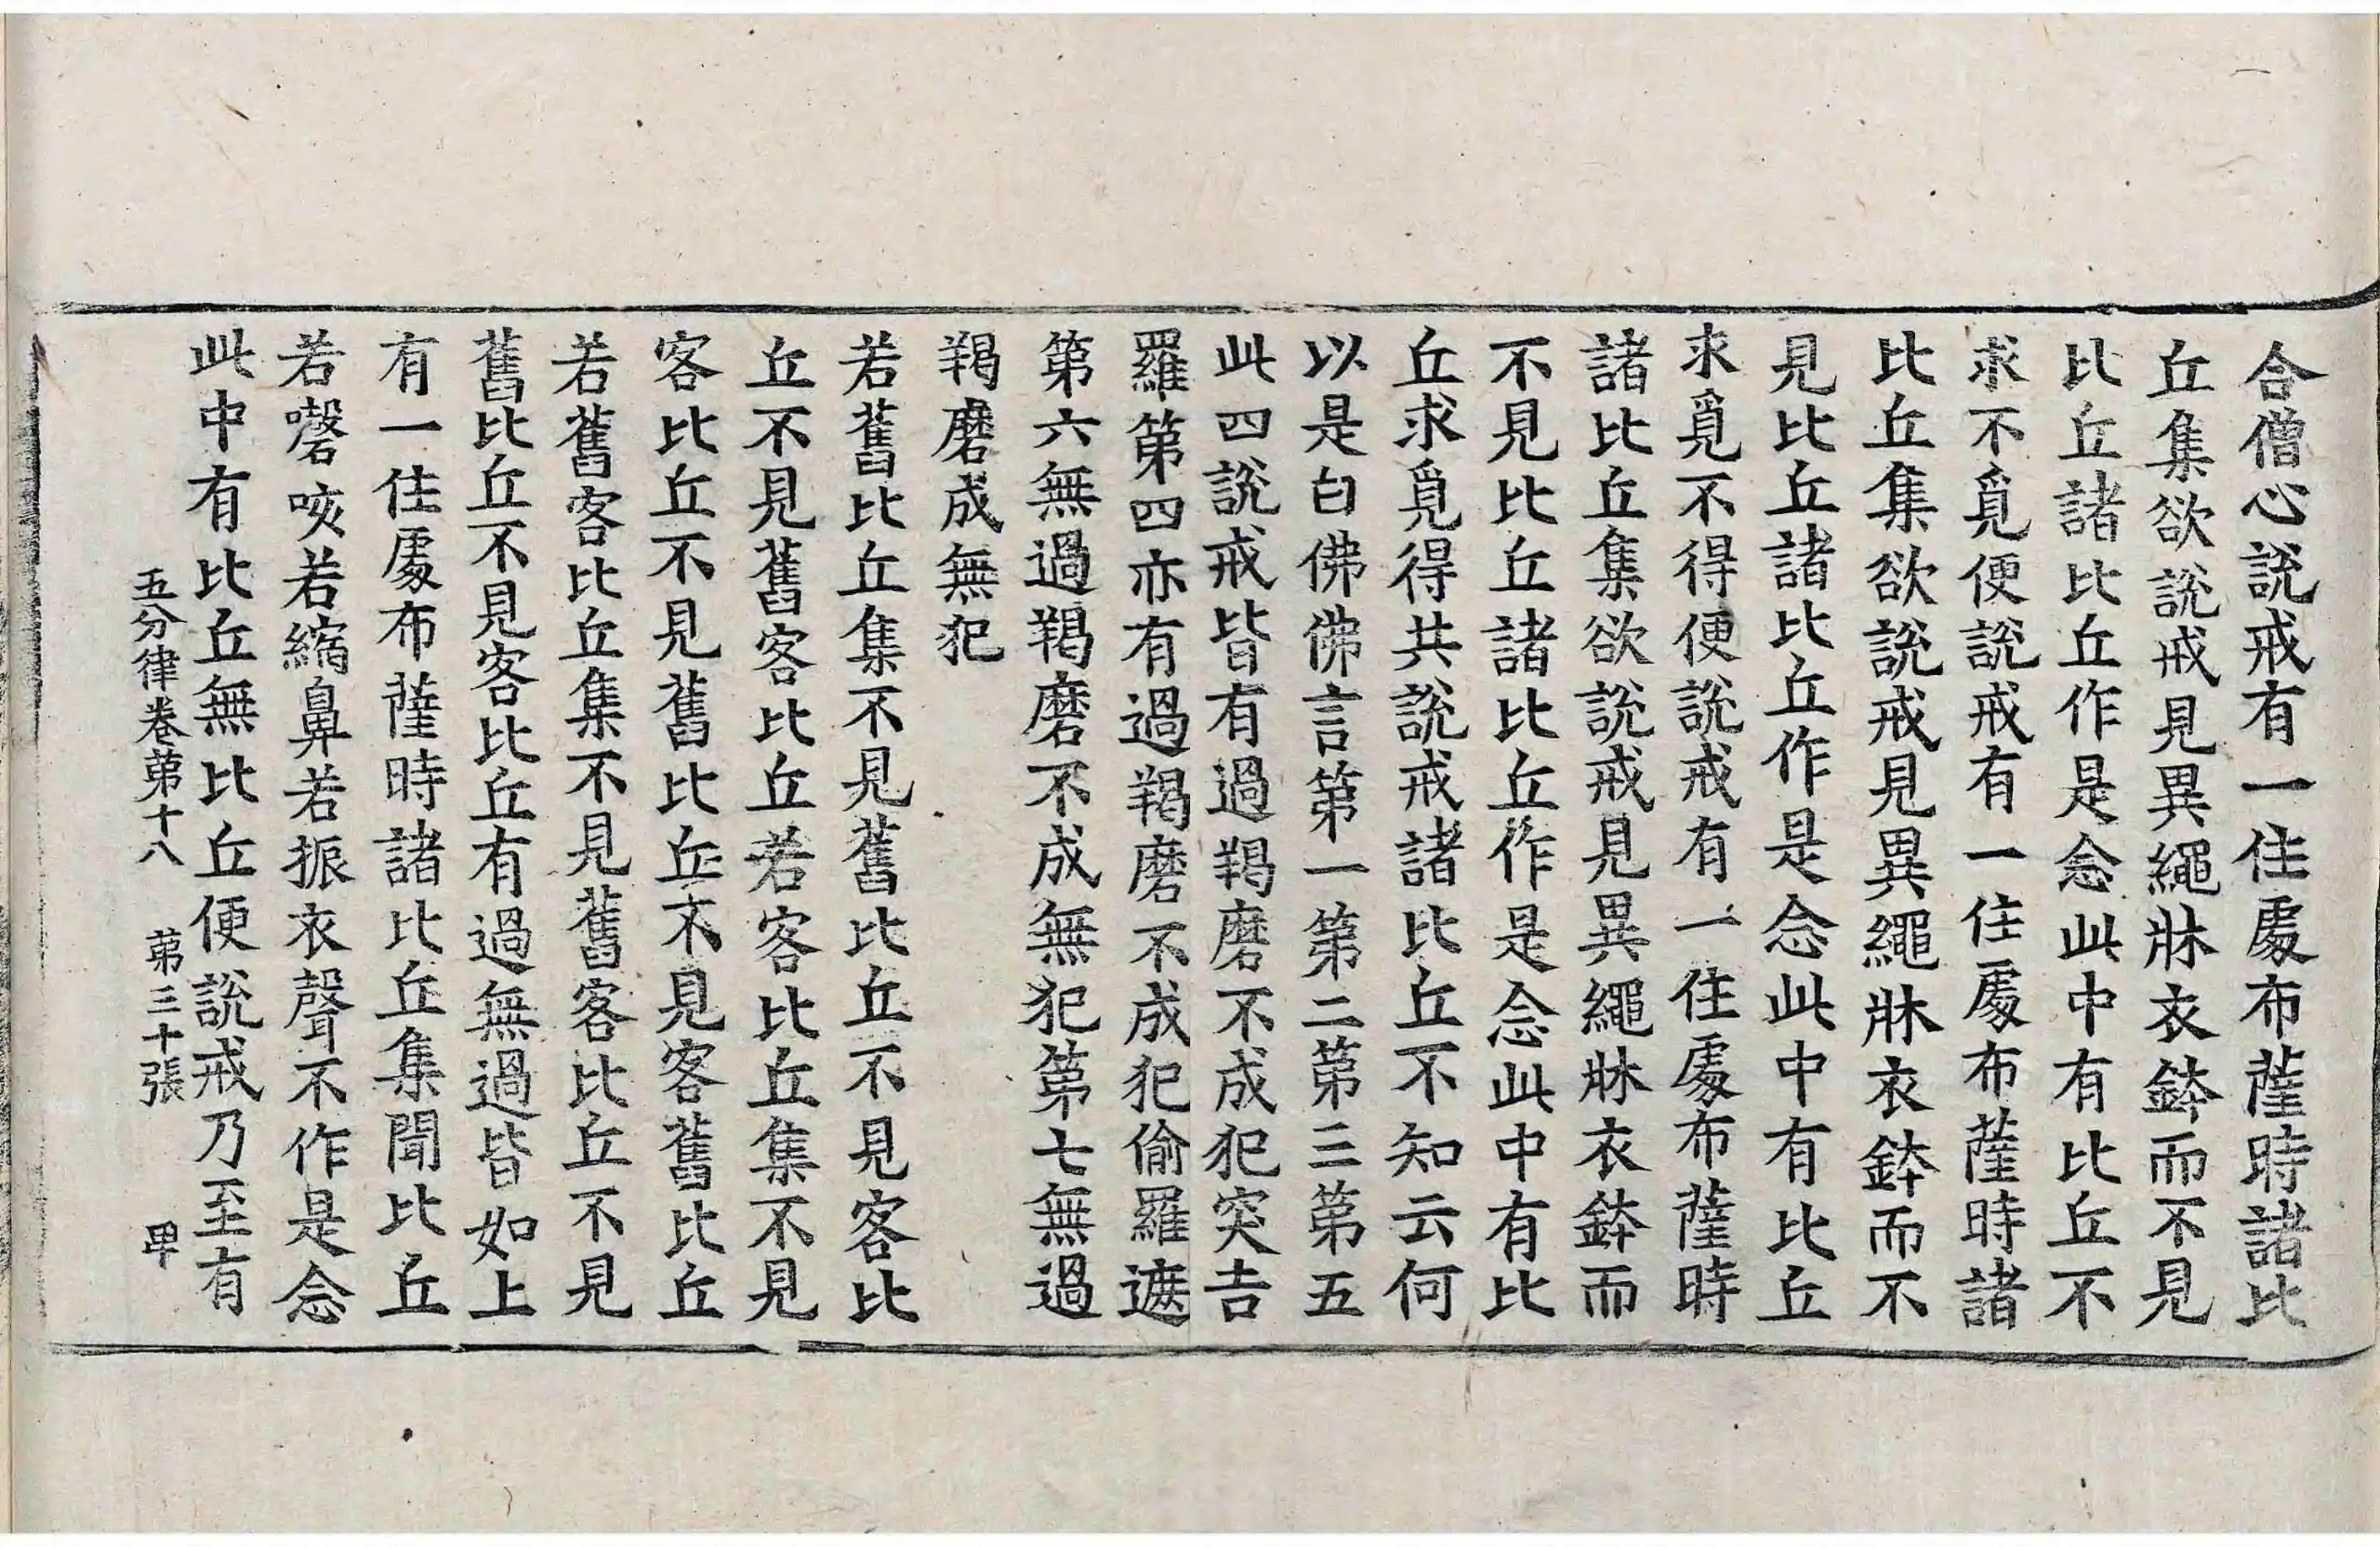 合僧心說戒有一住處布薩時諸比
丘集欲說戒見異繩牀衣鉢而不見
比丘諸比丘作是念此中有比丘不
求不覓便說戒有一住處布薩時諸
比丘集欲說戒見異繩牀衣鉢而不
見比丘諸比丘作是念此中有比丘
求覓不得便說戒有一住處布薩時
諸比丘集欲說戒見異繩牀衣鉢而
不見比丘諸比丘作是念此中有比
丘求覓得共說戒諸比丘不知云何
以是白佛佛言第一第二第三第五
此四說戒皆有過羯磨不成犯突吉
羅第四亦有過羯磨不成犯偷羅遮
第六無過羯磨不成無犯第七無過
羯磨成無犯
若舊比丘集不見舊比丘不見客比
丘不見舊客比丘若客比丘集不見
客比丘不見舊比丘不見客舊比丘
若舊客比丘集不見舊客比丘不見
舊比丘不見客比丘有過無過皆如上
有一住處布薩時諸比丘集聞比丘
若謦咳若縮鼻若振衣聲不作是念
此中有比丘無比丘便說戒乃至有
五分律卷第十八 第三十張 卑